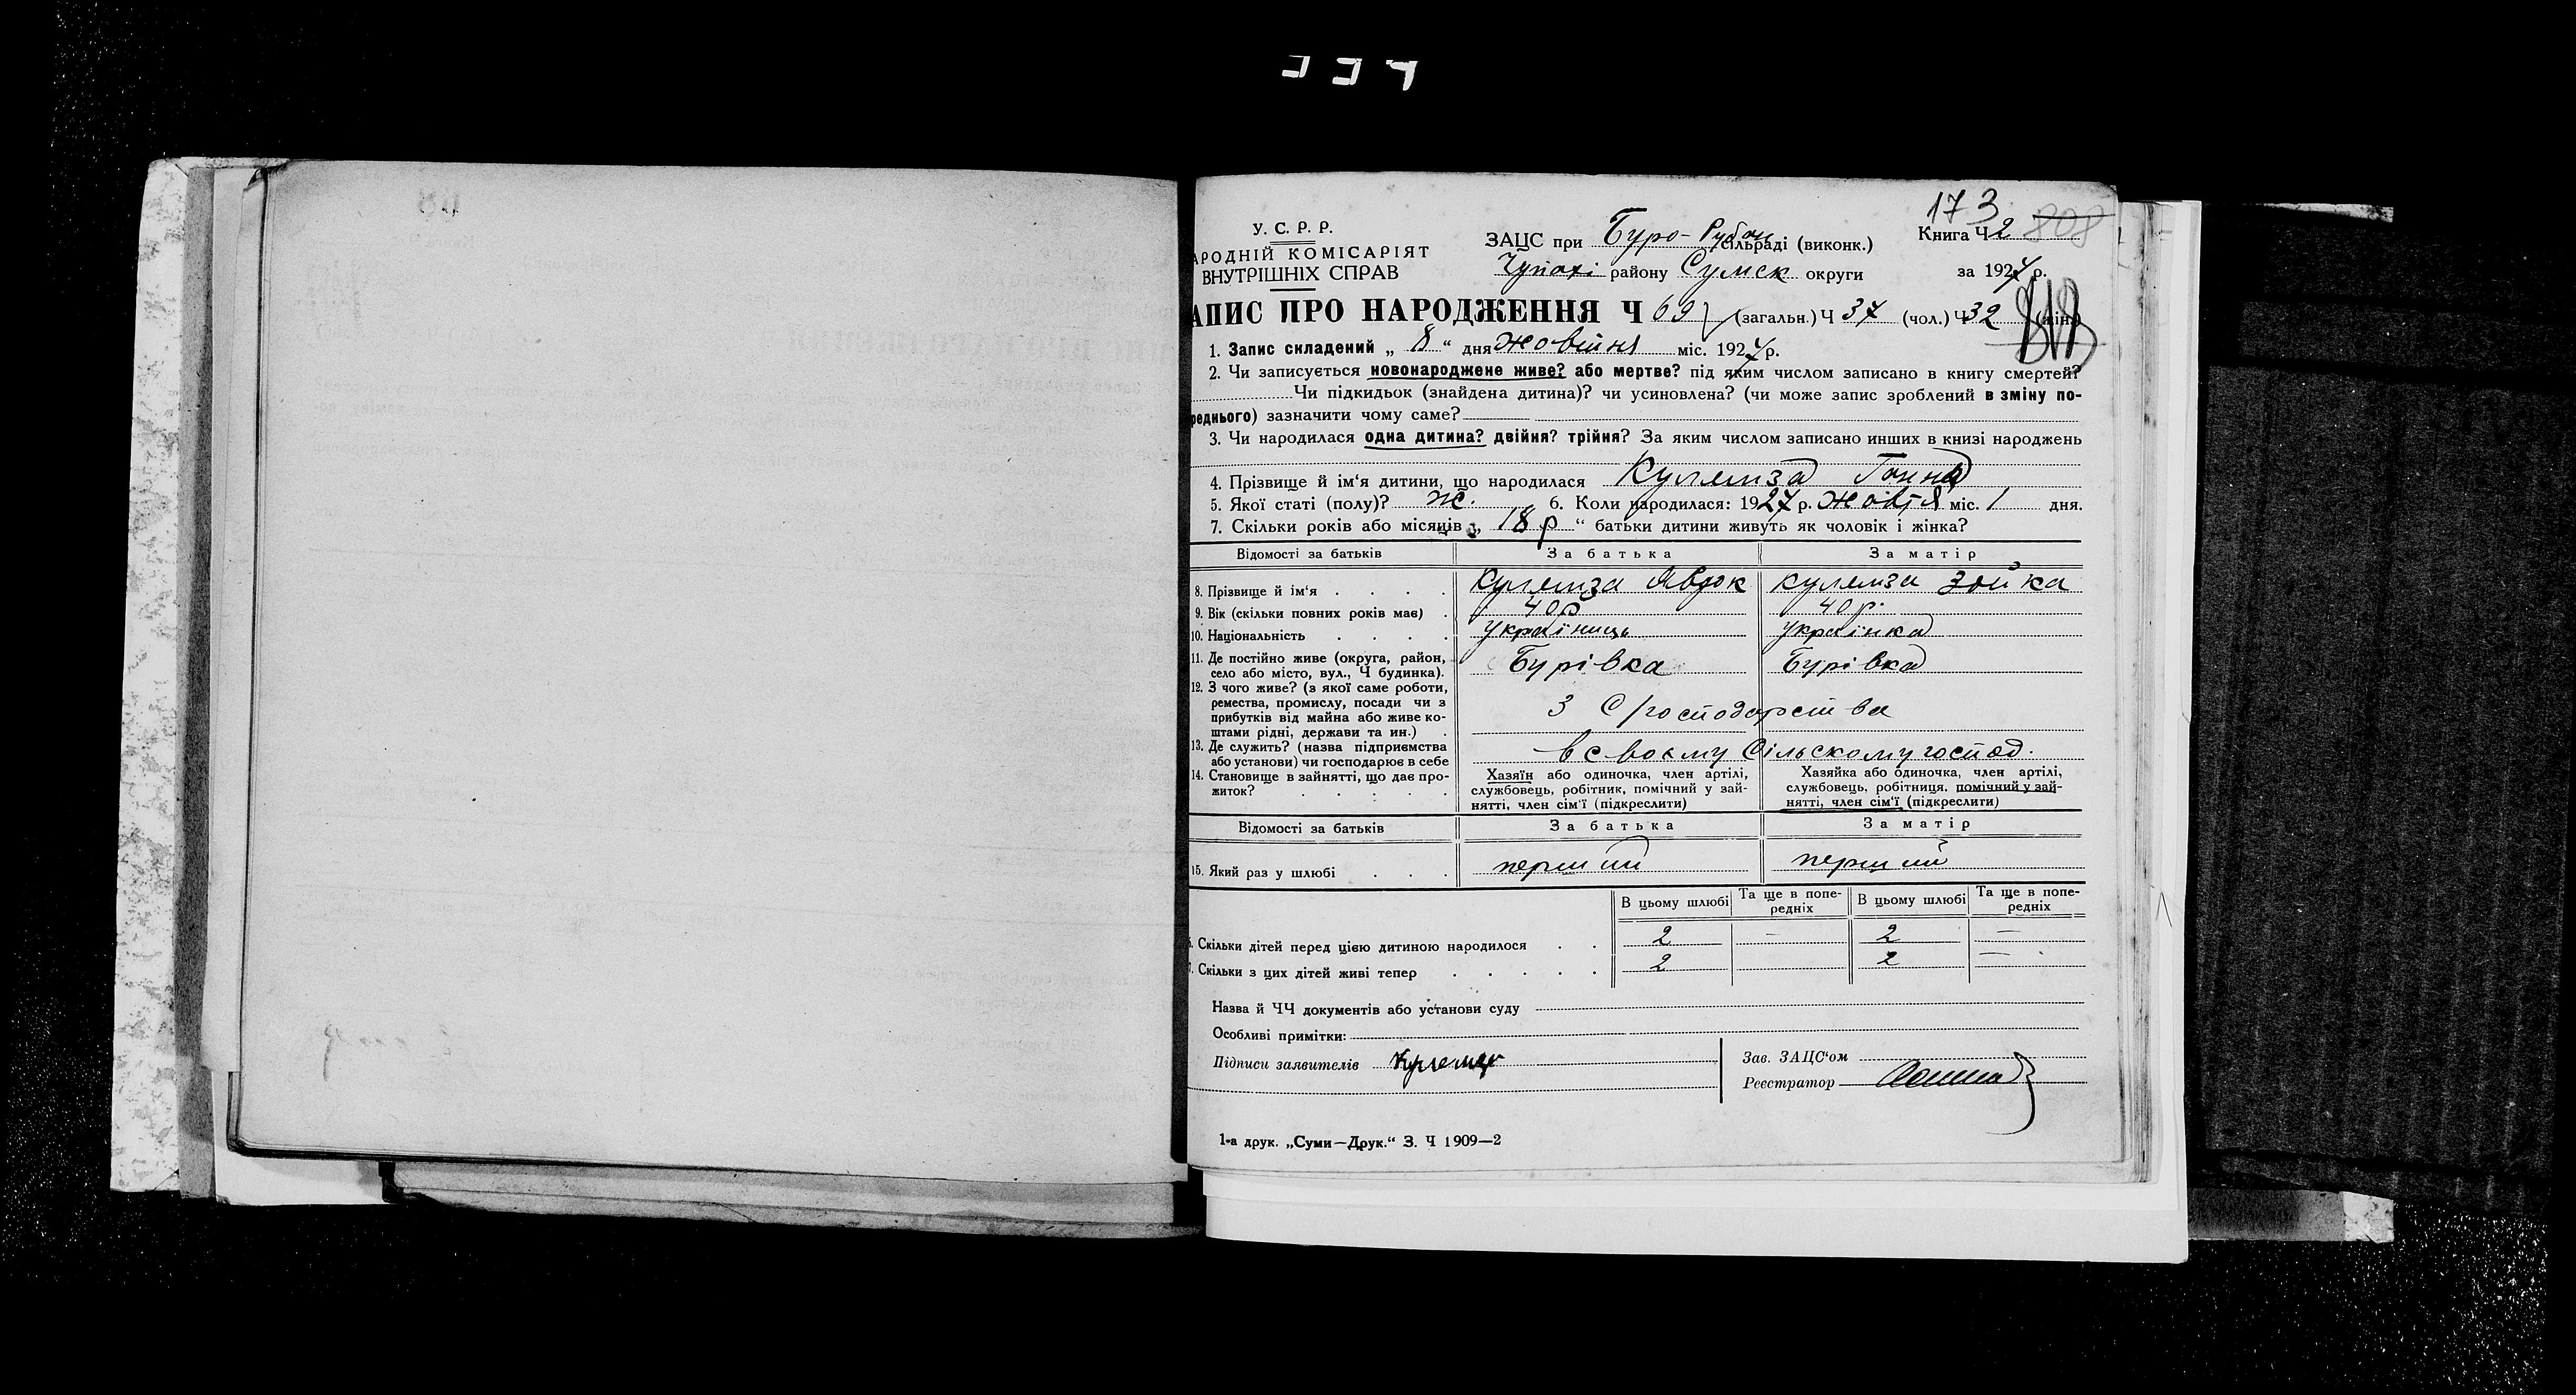 173
У. С. Р. Р.
ЗАЦС при Буро-Рубан сільраді (виконк.)
Книга Ч 2 808
АРОДНІЙ КОМІСАРІЯТ
ВНУТРІШНІХ СПРАВ
Чупахі району Сумск округи
за 1927 р.
АПИС ПРО НАРОДЖЕННЯ Ч 69 (загальн.) Ч 37 (чол.) Ч 32
1. Запис складений „ 8 “ дня жовтня міс. 1927 р.
2. Чи записується новонароджене живе? або мертве? під яким числом записано в книгу смертей?
Чи підкидьок (знайдена дитина)? чи усиновлена? (чи може запис зроблений в зміну по-
реднього) зазначити чому саме?
3. Чи народилася одна дитина? двійня? трійня? За яким числом записано инших в книзі народжень
4. Прізвище й ім‘я дитини, що народилася Кулемза Ганна
5. Якої статі (полу)? ж. 6. Коли народилася: 1927 р. жовтя міс. 1 дня.
7. Скільки років або місяців „ 18 р “ батьки дитини живуть як чоловік і жінка?
Відомості за батьків За батька За матір
8. Прізвище й ім‘я . . . . Кулемза Явдок Кулемза Зойка
9. Вік (скільки повних років має) . 40 р 40 р.
10. Національність . . . . Українць Українка
11. Де постійно живе (округа, район,
село або місто, вул., Ч будинка). Бурівка Бурівка
12. З чого живе? (з якої саме роботи,
ремества, промислу, посади чи з
прибутків від майна або живе ко-
штами рідні, держави та ин.) . З С/господарства
13. Де служить? (назва підприємства
або установи) чи господарює в себе в своєму Сільскому господ.
14. Становище в зайнятті, що дає про-
житок? . . . . .
Хазяїн або одиночка, член артілі,
службовець, робітник, помічний у зай-
нятті, член сім‘ї (підкреслити)
Хазяйка або одиночка, член артілі,
службовець, робітниця, помічний у зай-
нятті, член сім‘ї (підкреслити)
Відомості за батьків За батька За матір
15. Який раз у шлюбі . . . перший перший
В цьому шлюбі Та ще в попе-редніх В цьому шлюбі Та ще в попе-редніх
6. Скільки дітей перед цією дитиною народилося . . 2 — 2 —
7. Скільки з цих дітей живі тепер . . . . . 2 2 —
Назва й ЧЧ документів або установи суду
Особливі примітки:
Підписи заявителів Кулемз
Зав. ЗАЦС‘ом
Реєстратор
1-а друк. „Суми—Друк.“ З. Ч 1909—2